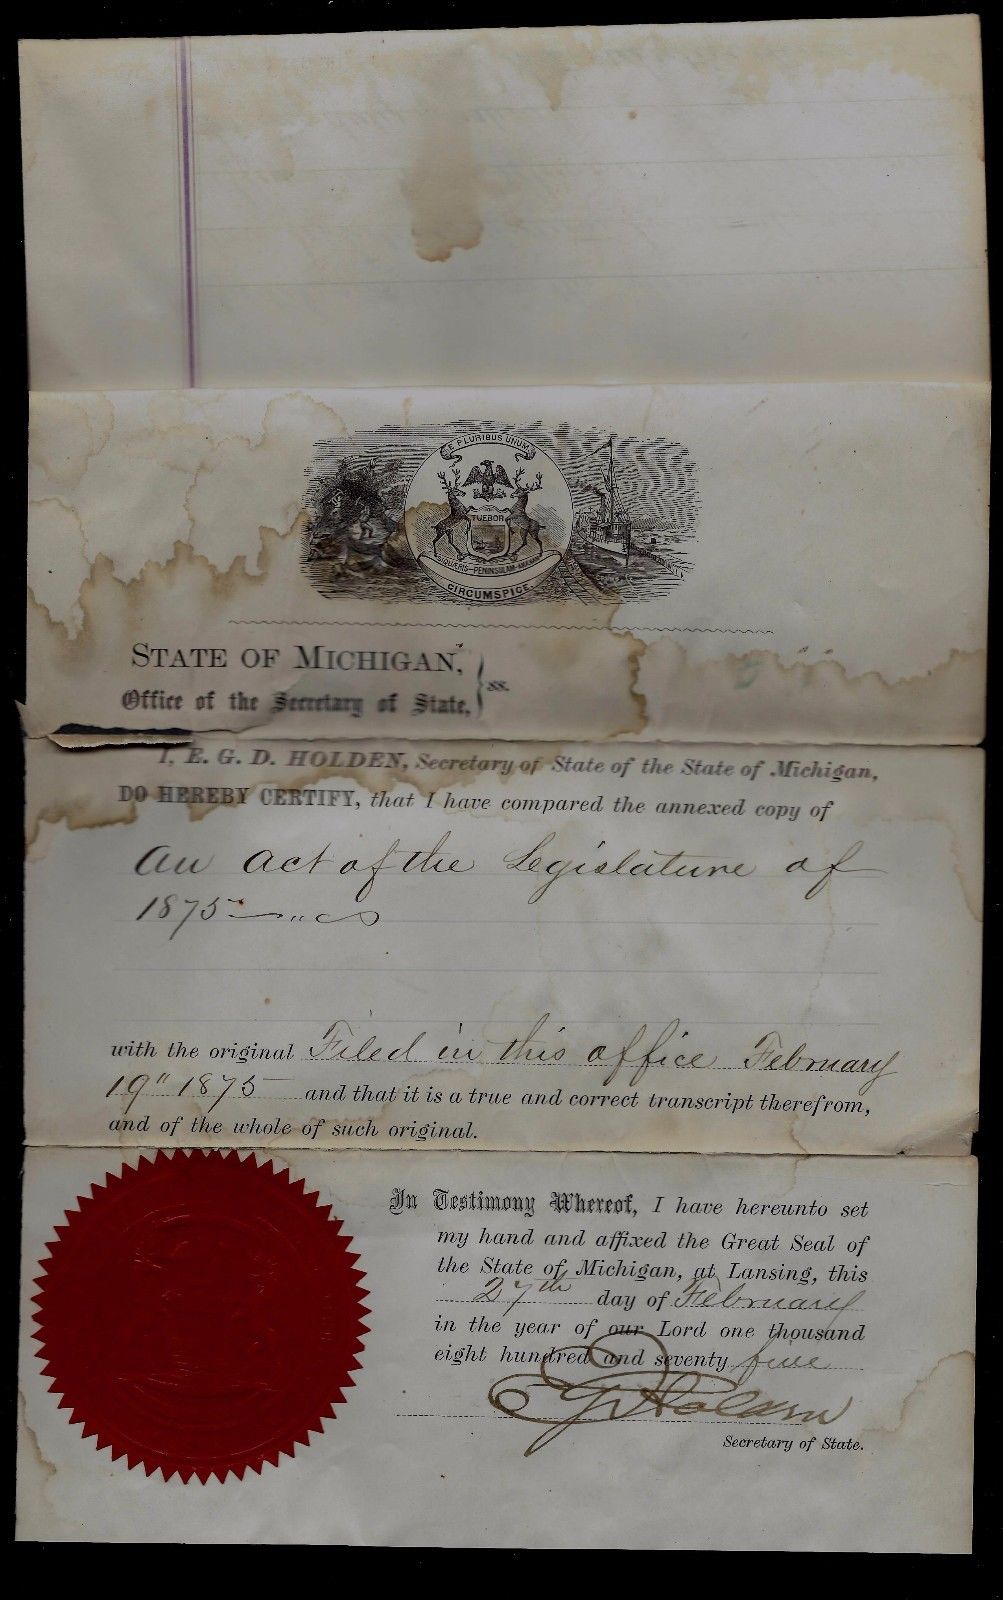 E PLURIBUS UNUM
TUEBOR
SI QUÆRIS PENINSULAM AMŒNAM
CIRCUMSPICE
STATE OF MICHIGAN,
Office of the Secretary of State, } ss.
I, E. G. D. HOLDEN, Secretary of State of the State of Michigan,
DO HEREBY CERTIFY, that I have compared the annexed copy of
An act of the Legislature of
1875
with the original Filed in this office February
19" 1875 and that it is a true and correct transcript therefrom,
and of the whole of such original.
In Testimony Whereof, I have hereunto set
my hand and affixed the Great Seal of
the State of Michigan, at Lansing, this
27th day of February
in the year of our Lord one thousand
eight hundred and seventy five
E G D Holden
Secretary of State.